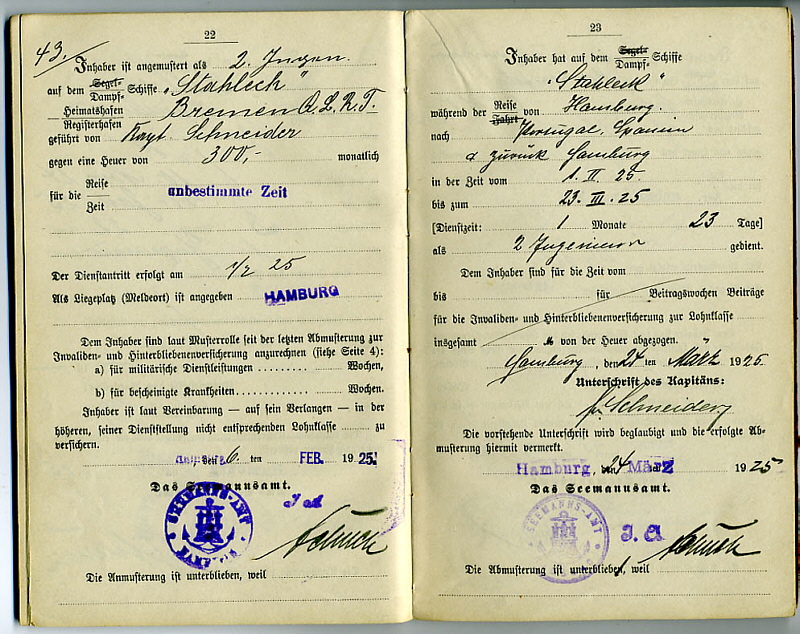 22
43.
Inhaber ist angemustert als 2. Ingen.
auf dem Segel- Dampf- Schiffe „Stahleck"
Heimatshafen Registerhafen Bremen Q.L.R.T.
geführt von Kapt. Schneider
gegen eine Heuer von 300,- monatlich
für die Reise Zeit unbestimmte Zeit
Der Dienstantritt erfolgt am 1/2 25
Als Liegeplatz (Meldeort) ist angegeben HAMBURG
Dem Inhaber sind laut Musterrolle seit der letzten Abmusterung zur
Invaliden- und Hinterbliebenenversicherung anzurechnen (siehe Seite 4):
a) für militärische Dienstleistungen .......... Wochen,
b) für bescheinigte Krankheiten .......... Wochen.
Inhaber ist laut Vereinbarung — auf sein Verlangen — in der
höheren, seiner Dienststellung nicht entsprechenden Lohnklasse zu
versichern.
, den 6. ten FEB. 1925.
Das Seemannsamt.
J A
SEEMANNS-AMT
Die Anmusterung ist unterblieben, weil
23
Inhaber hat auf dem Segel- Dampf- Schiffe
„Stahleck"
während der Reise Fahrt von Hamburg.
nach Portugal, Spanien
& zurück Hamburg
in der Zeit vom 1. II. 25.
bis zum 23. III. 25
[Dienstzeit: 1 Monate 23 Tage]
als 2 Ingenieur gedient.
Dem Inhaber sind für die Zeit vom
bis für Beitragswochen Beiträge
für die Invaliden- und Hinterbliebenenversicherung zur Lohnklasse
insgesamt M von der Heuer abgezogen.
Hamburg, den 24 ten März 1925.
Unterschrift des Kapitäns:
Schneider
Die vorstehende Unterschrift wird beglaubigt und die erfolgte Ab-
musterung hiermit vermerkt.
Hamburg, den 24 März 1925
Das Seemannsamt.
J. A.
SEEMANNS-AMT
Die Abmusterung ist unterblieben, weil